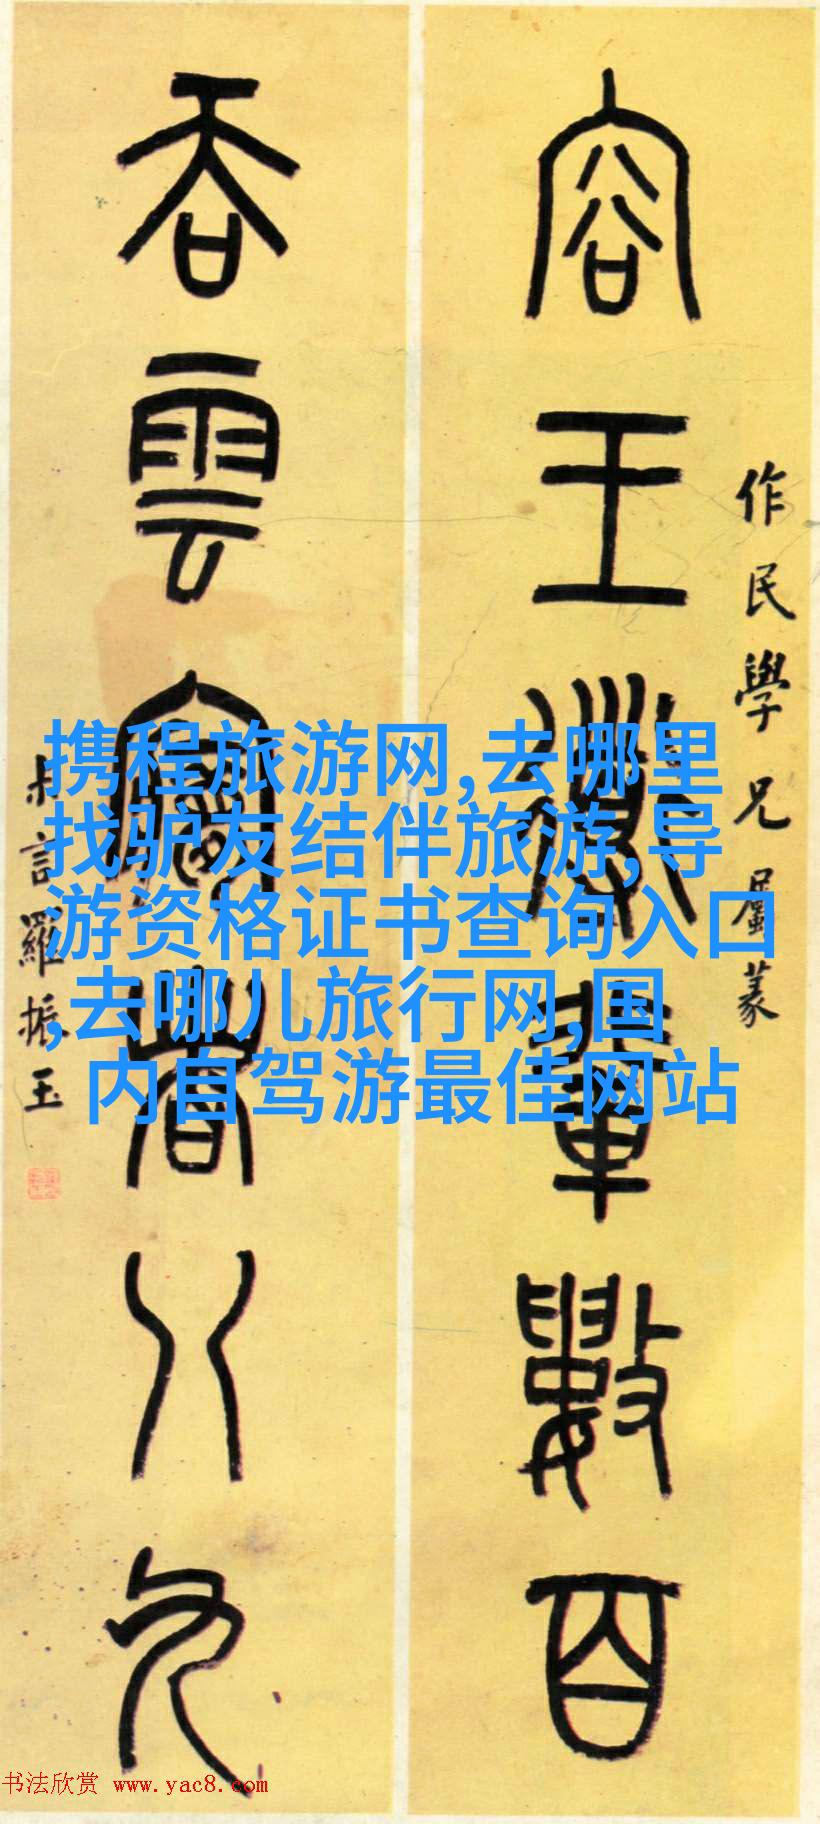 作民學兄屬篆
容王導輩數百
吞雲夢者八九
叔言羅振玉
携程旅游网,去哪里
找驴友结伴旅游,导
游资格证书查询入口
,去哪儿旅行网,国
内自驾游最佳网站
书法欣赏 www.yac8.com